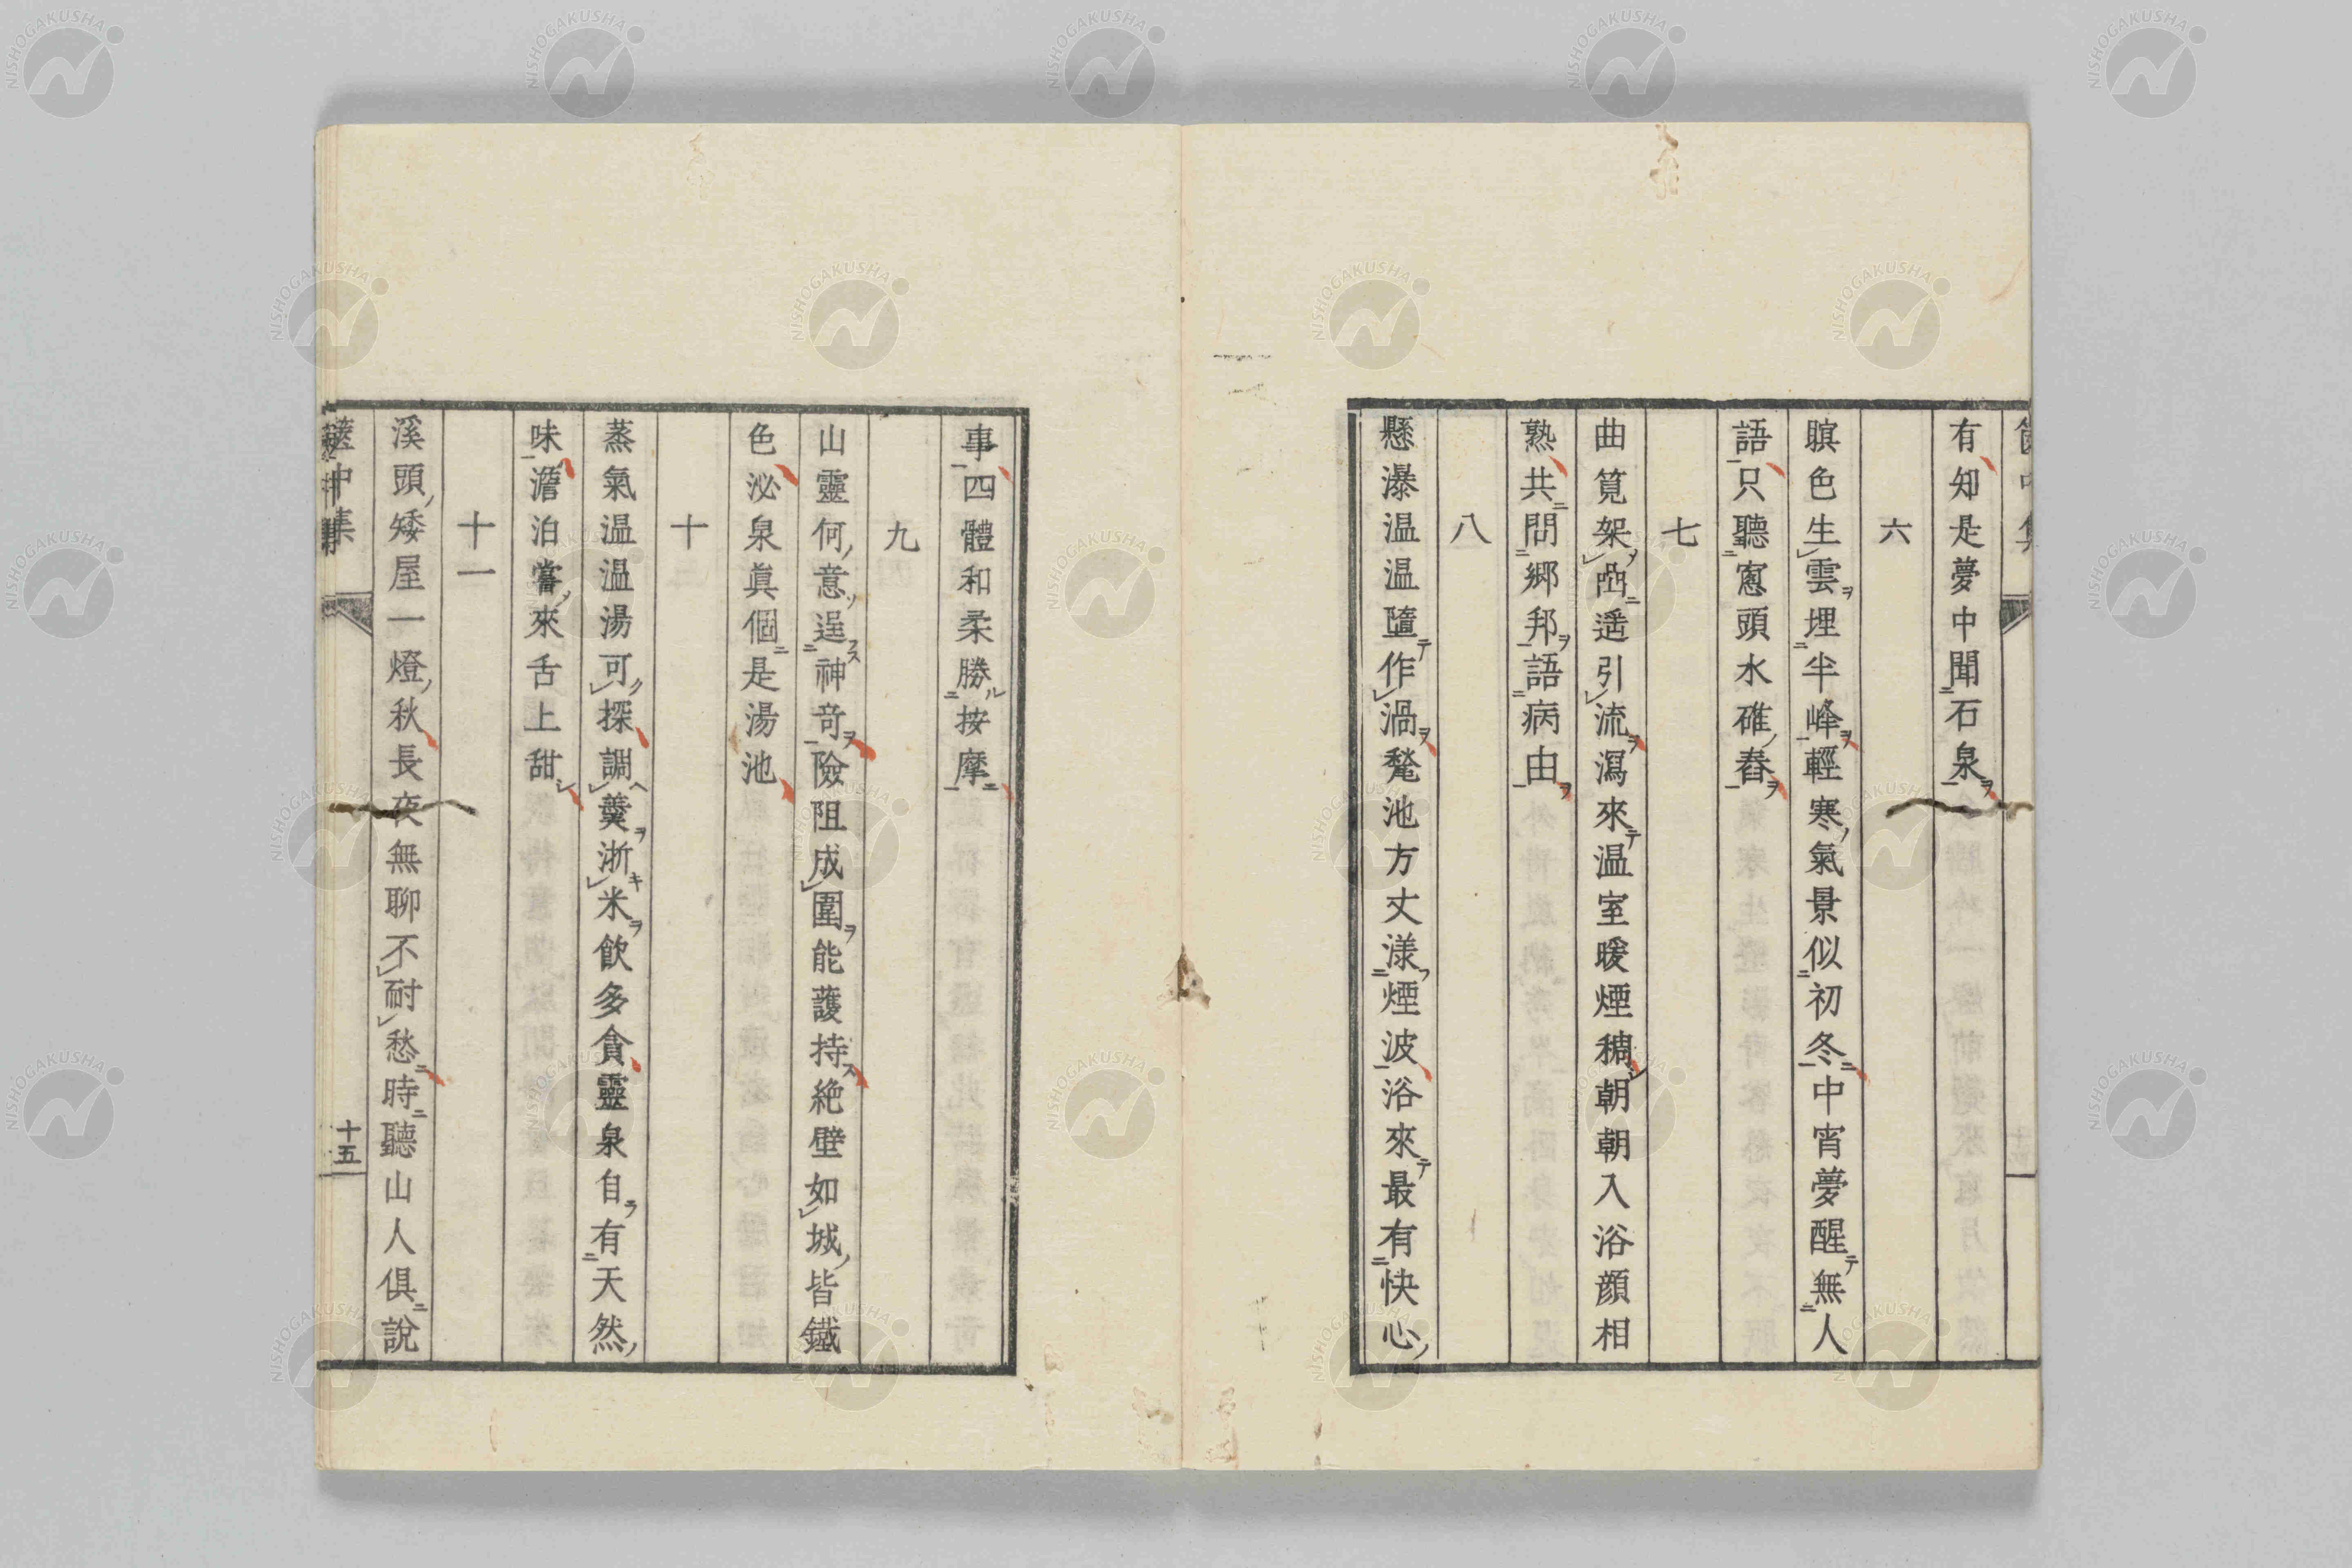 有知是夢中聞石泉
六
瞑色生雲埋半峰輕寒氣景似初冬中宵夢醒無人
語只聽窻頭水碓舂
七
曲筧架凸遥引流瀉來温室暖煙稠朝朝入浴顔相
熟共問郷邦語病由
八
懸瀑温温墮作渦甃池方丈漾煙波浴來最有快心
事四體和柔勝按摩
九
山靈何意逞神奇險阻成圍能護持絶壁如城皆鐵
色泌泉眞個是湯池
十
蒸氣温温湯可探調羹淅米飲多貪靈泉自有天然
味澹泊嘗來舌上甜
十一
溪頭矮屋一燈秋長夜無聊不耐愁時聽山人俱說
中集
十五
NISHOGAKUSHA